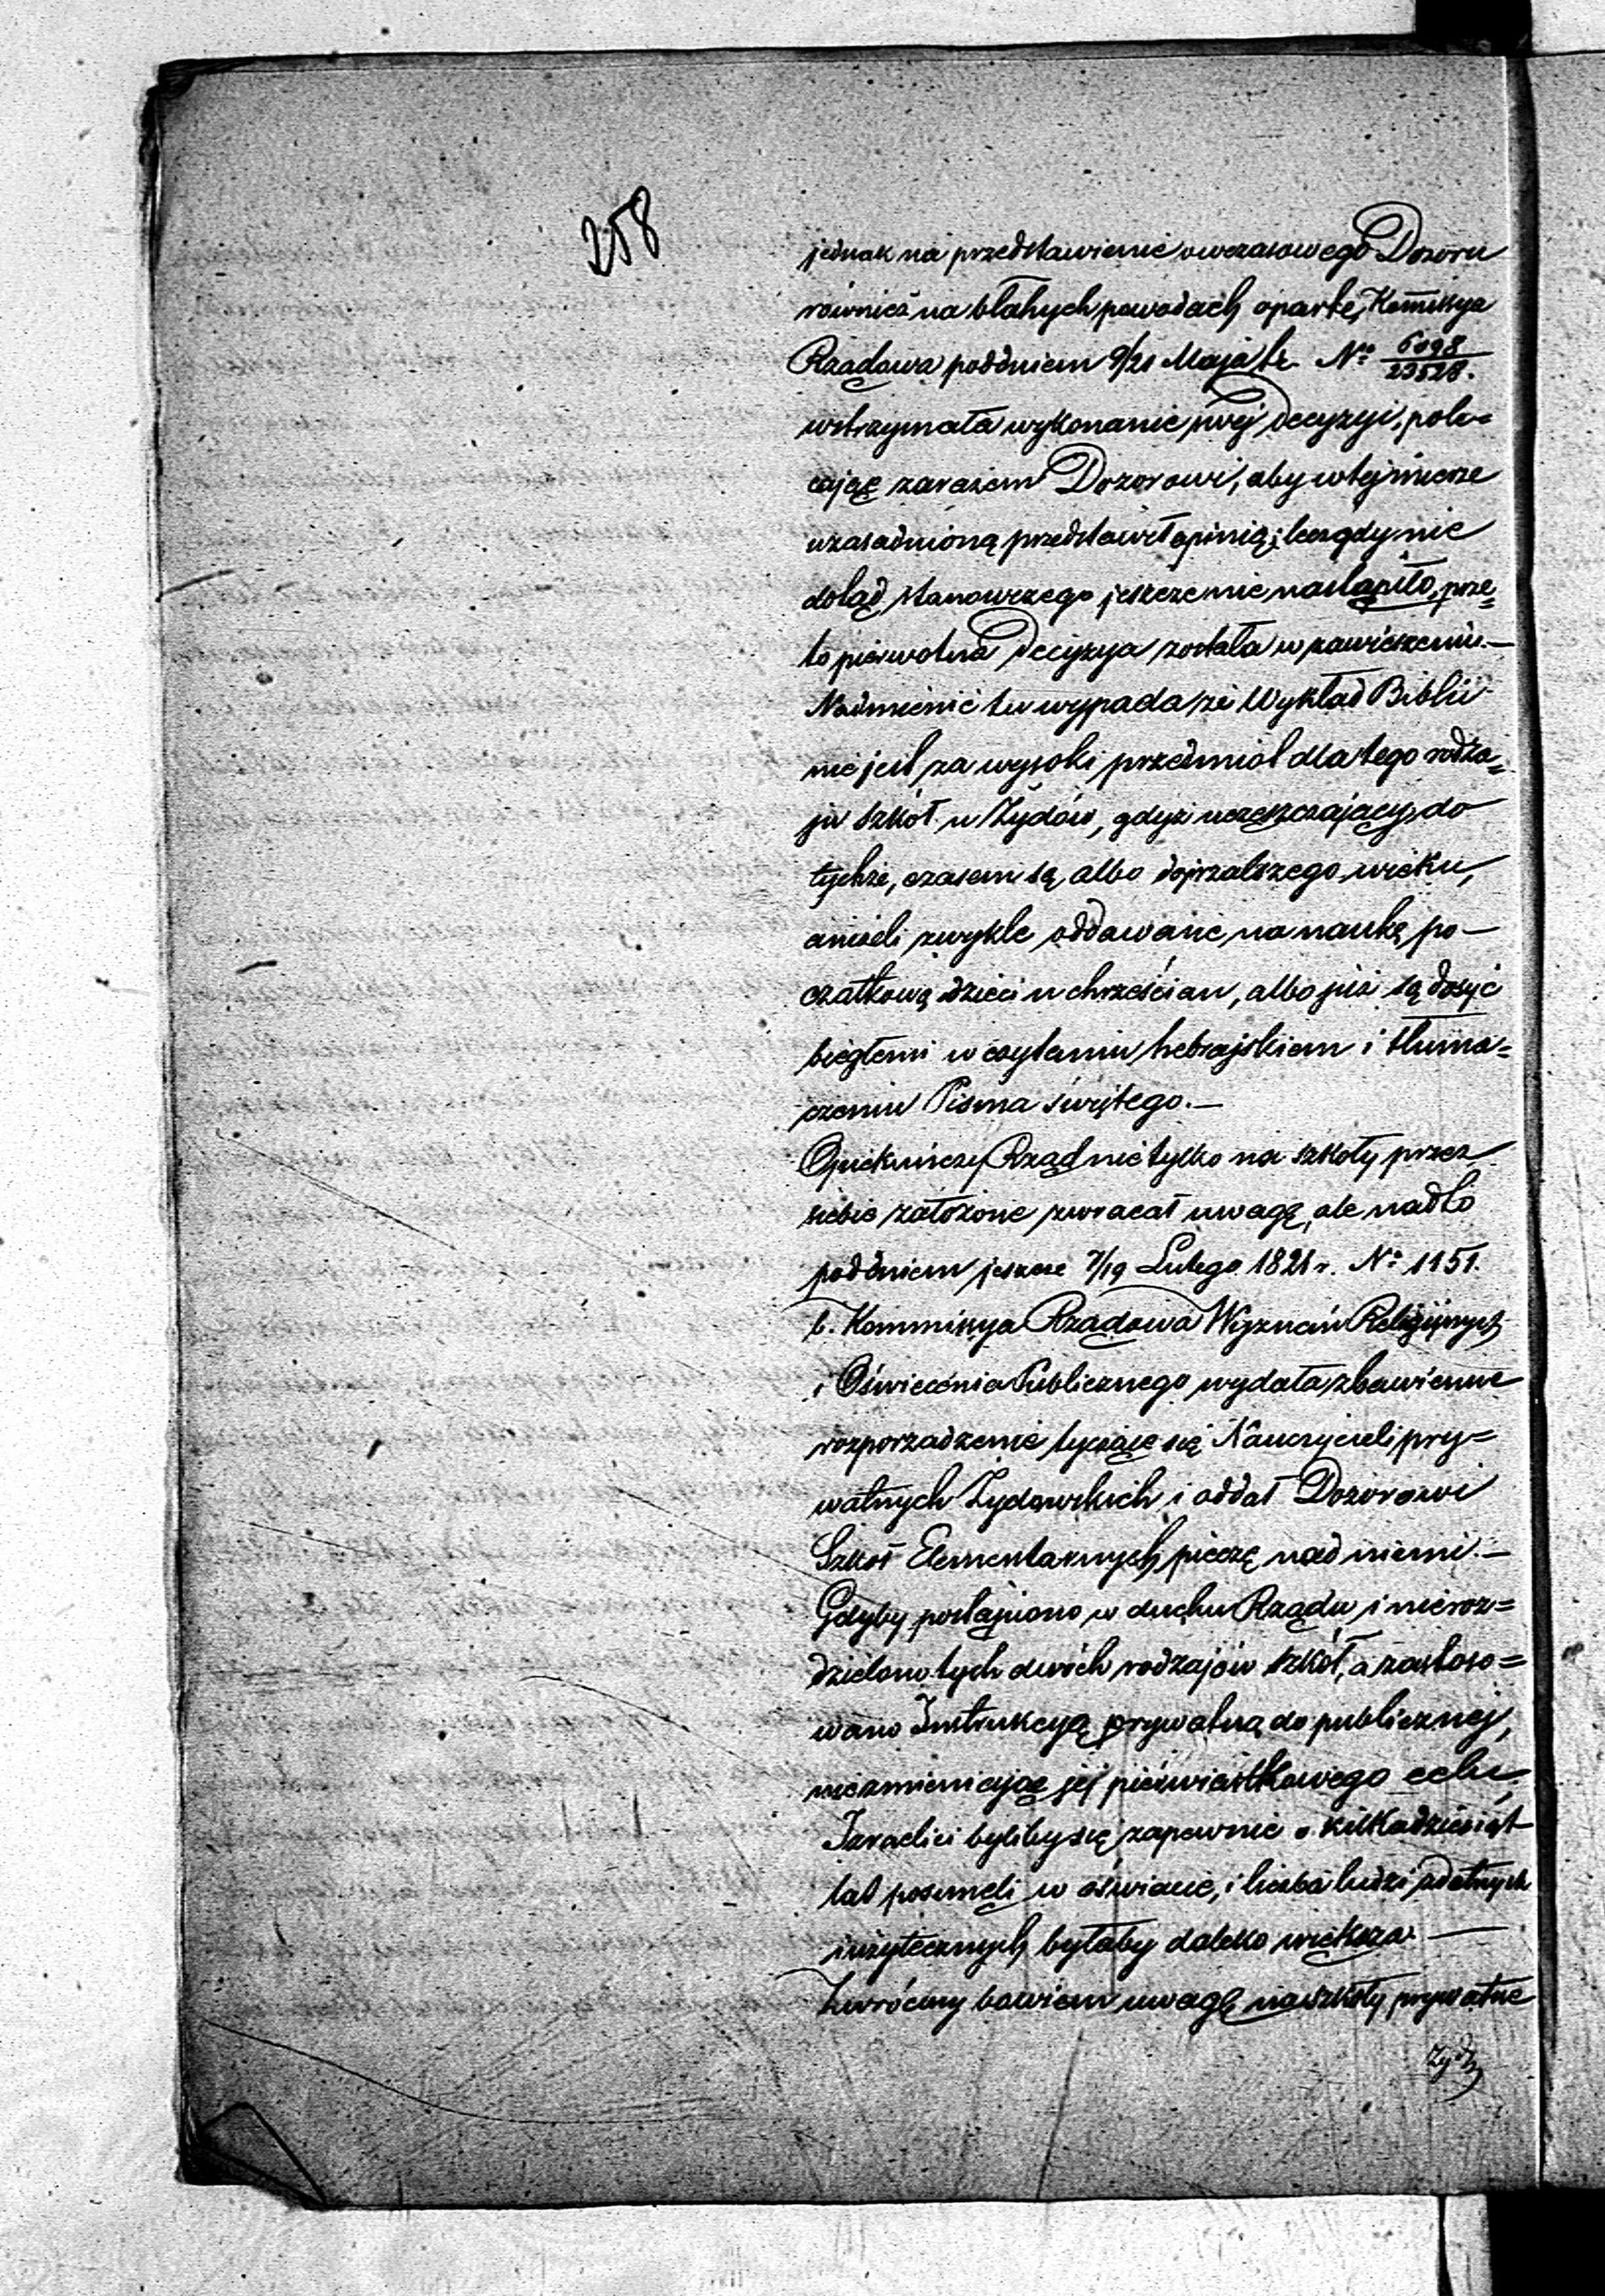 258
jednak na przedstawienie owczasowego Dozoru
również na błahych powodach oparte, Kommissya
Rządowa pod dniem 9/21 Maja t.r. No 6098/23528.
wstrzymała wykonanie swej decyzyi, pole=
cając zarazem Dozorowi, aby w tej mierze
uzasadnioną przedstawił opinią; lecz gdy nic
dotąd stanowczego jeszcze nie nastąpiło, prze=
to pierwotna decyzya została w zawieszeniu.—
Nadmienić tu wypada, że Wykład Biblii
nie jest za wysoki przedmiot dla tego rodza=
ju szkół u Żydów, gdyż uczęszczający do
tychże, czasem są albo dojrzalszego wieku,
aniżeli zwykle oddawane na naukę po—
czątkową dzieci u chrześcian, albo już są dosyć
biegłemi w czytaniu hebrajskiem i tłuma=
czeniu Pisma świętego.—
Opiekuńczy Rząd nie tylko na szkoły przez
siebie założone zwracał uwagę, ale nadto
pod dniem jeszcze 7/19 Lutego 1821 r. No 1151.
b. Kommissya Rządowa Wyznań Religijnych
i Oświecenia Publicznego wydała zbawienne
rozporządzenie tyczące się Nauczycieli pry=
watnych Żydowskich i oddał Dozorowi
Szkół Elementarnych pieczę nad niemi.—
Gdyby postąpiono w duchu Rządu i nieroz=
dzielono tych dwóch rodzajów szkół, a zastoso=
wano Instrukcyą prywatną do publicznej,
niezmieniając jej pierwiastkowego celu
Izraelici byliby się zapewnie o kilkadziesiąt
lat posunęli w oświacie, i liczba ludzi zdatnych
i użytecznych byłaby daleko większa.—
Zwróćmy bowiem uwagę na szkoły prywatne